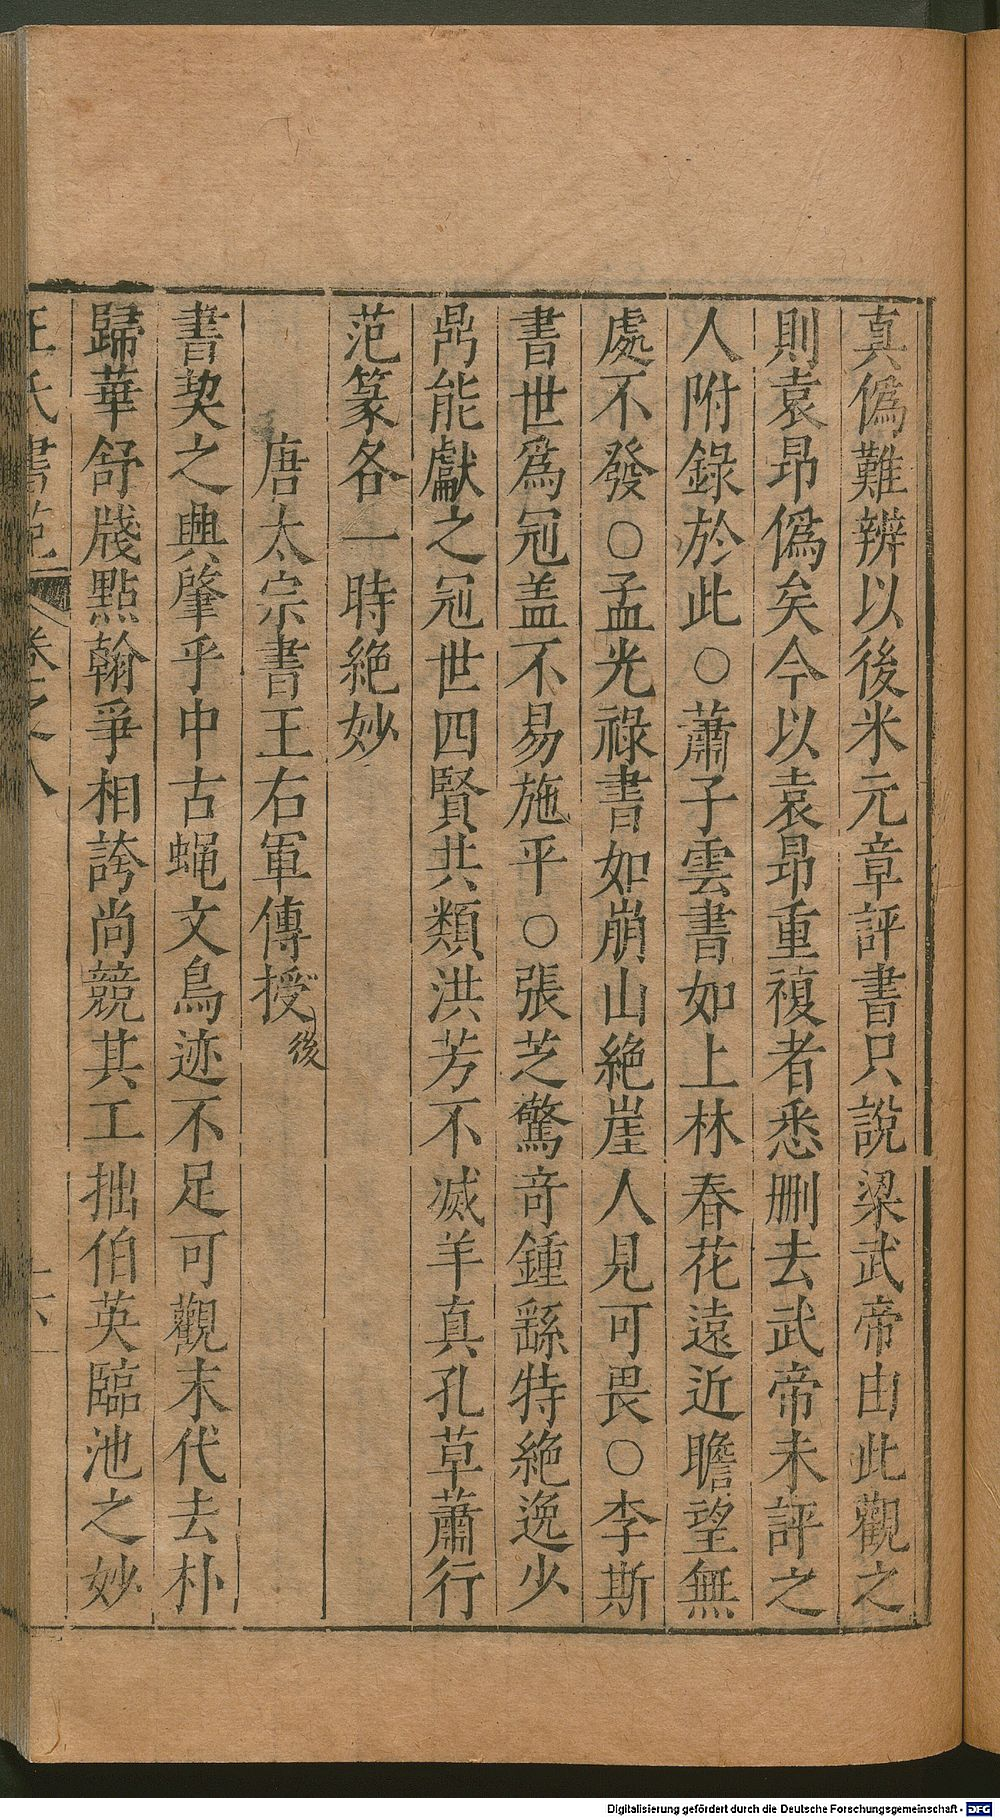 真僞難辨以後米元章評書只說梁武帝由此觀之
則袁昂僞矣今以袁昂重複者悉删去武帝未評之
人附錄於此○蕭子雲書如上林春花遠近瞻望無
處不發○孟光祿書如崩山絶崖人見可畏○李斯
書世爲冠盖不易施平○張芝驚竒鍾繇特絶逸少
鼎能獻之冠世四賢共類洪芳不滅羊真孔草蕭行
范篆各一時絶妙
唐太宗書王右軍傳授後
書契之興肇乎中古蝇文鳥迹不足可觀末代去朴
歸華舒牋點翰爭相誇尚競其工拙伯英臨池之妙
氏書範 卷之八 十六
Digitalisierung gefördert durch die Deutsche Forschungsgemeinschaft - DFG